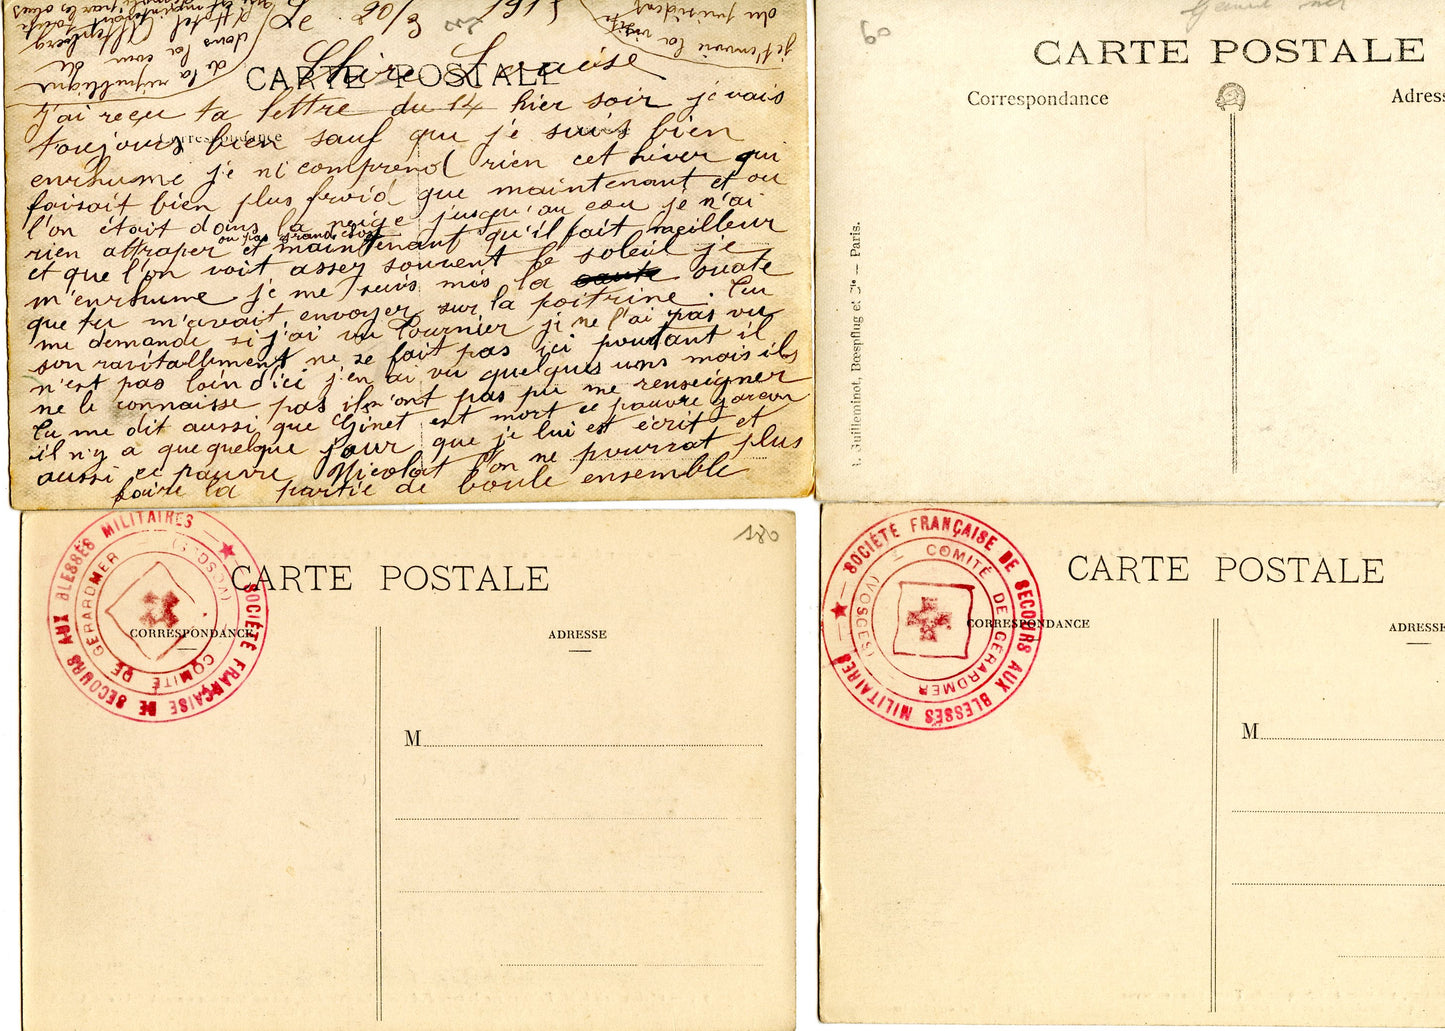 Le 20/3 1915
Chère Louise
CARTE POSTALE
Correspondance
J'ai reçu ta lettre du 14 hier soir je vais
toujours bien sauf que je suis bien
enrhumé je ni comprend rien cet hiver qui
faisait bien plus froid que maintenant et ou
l'on était dans la neige jusqu'au cou je n'ai
rien attraper et maintenant qu'il fait meilleur
ou pas grand chose
et que l'on voit assez souvent le soleil je
m'enrhume je me suis mis la ouate
que tu m'avait envoyer sur la poitrine. Tu
me demande si j'ai vu Tournier je ne l'ai pas vu
son ravitallement ne se fait pas ici pourtant il
n'est pas loin d'ici j'en ai vu quelques uns mais ils
ne le connaisse pas ils n'ont pas pu me renseigner
Tu me dit aussi que Ginet est mort ce pauvre garcon
il n'y a quequelque jour que je lui est écrit et
aussi ce pauvre Nicolat l'on ne pourrat plus
faire la partie de boule ensemble
je t'envoi la visite
du président
de la république
dans la cour de
l'Hotel Altenberg
60
CARTE POSTALE
Correspondance
Adress
Guilleminot, Bœspflug et Cie — Paris.
180
SOCIÉTÉ FRANÇAISE DE SECOURS AUX BLESSÉS MILITAIRES
COMITÉ DE GÉRARDMER (VOSGES)
CARTE POSTALE
CORRESPONDANCE
ADRESSE
M
SOCIÉTÉ FRANÇAISE DE SECOURS AUX BLESSÉS MILITAIRES
COMITÉ DE GÉRARDMER (VOSGES)
CARTE POSTALE
CORRESPONDANCE
ADRESSE
M